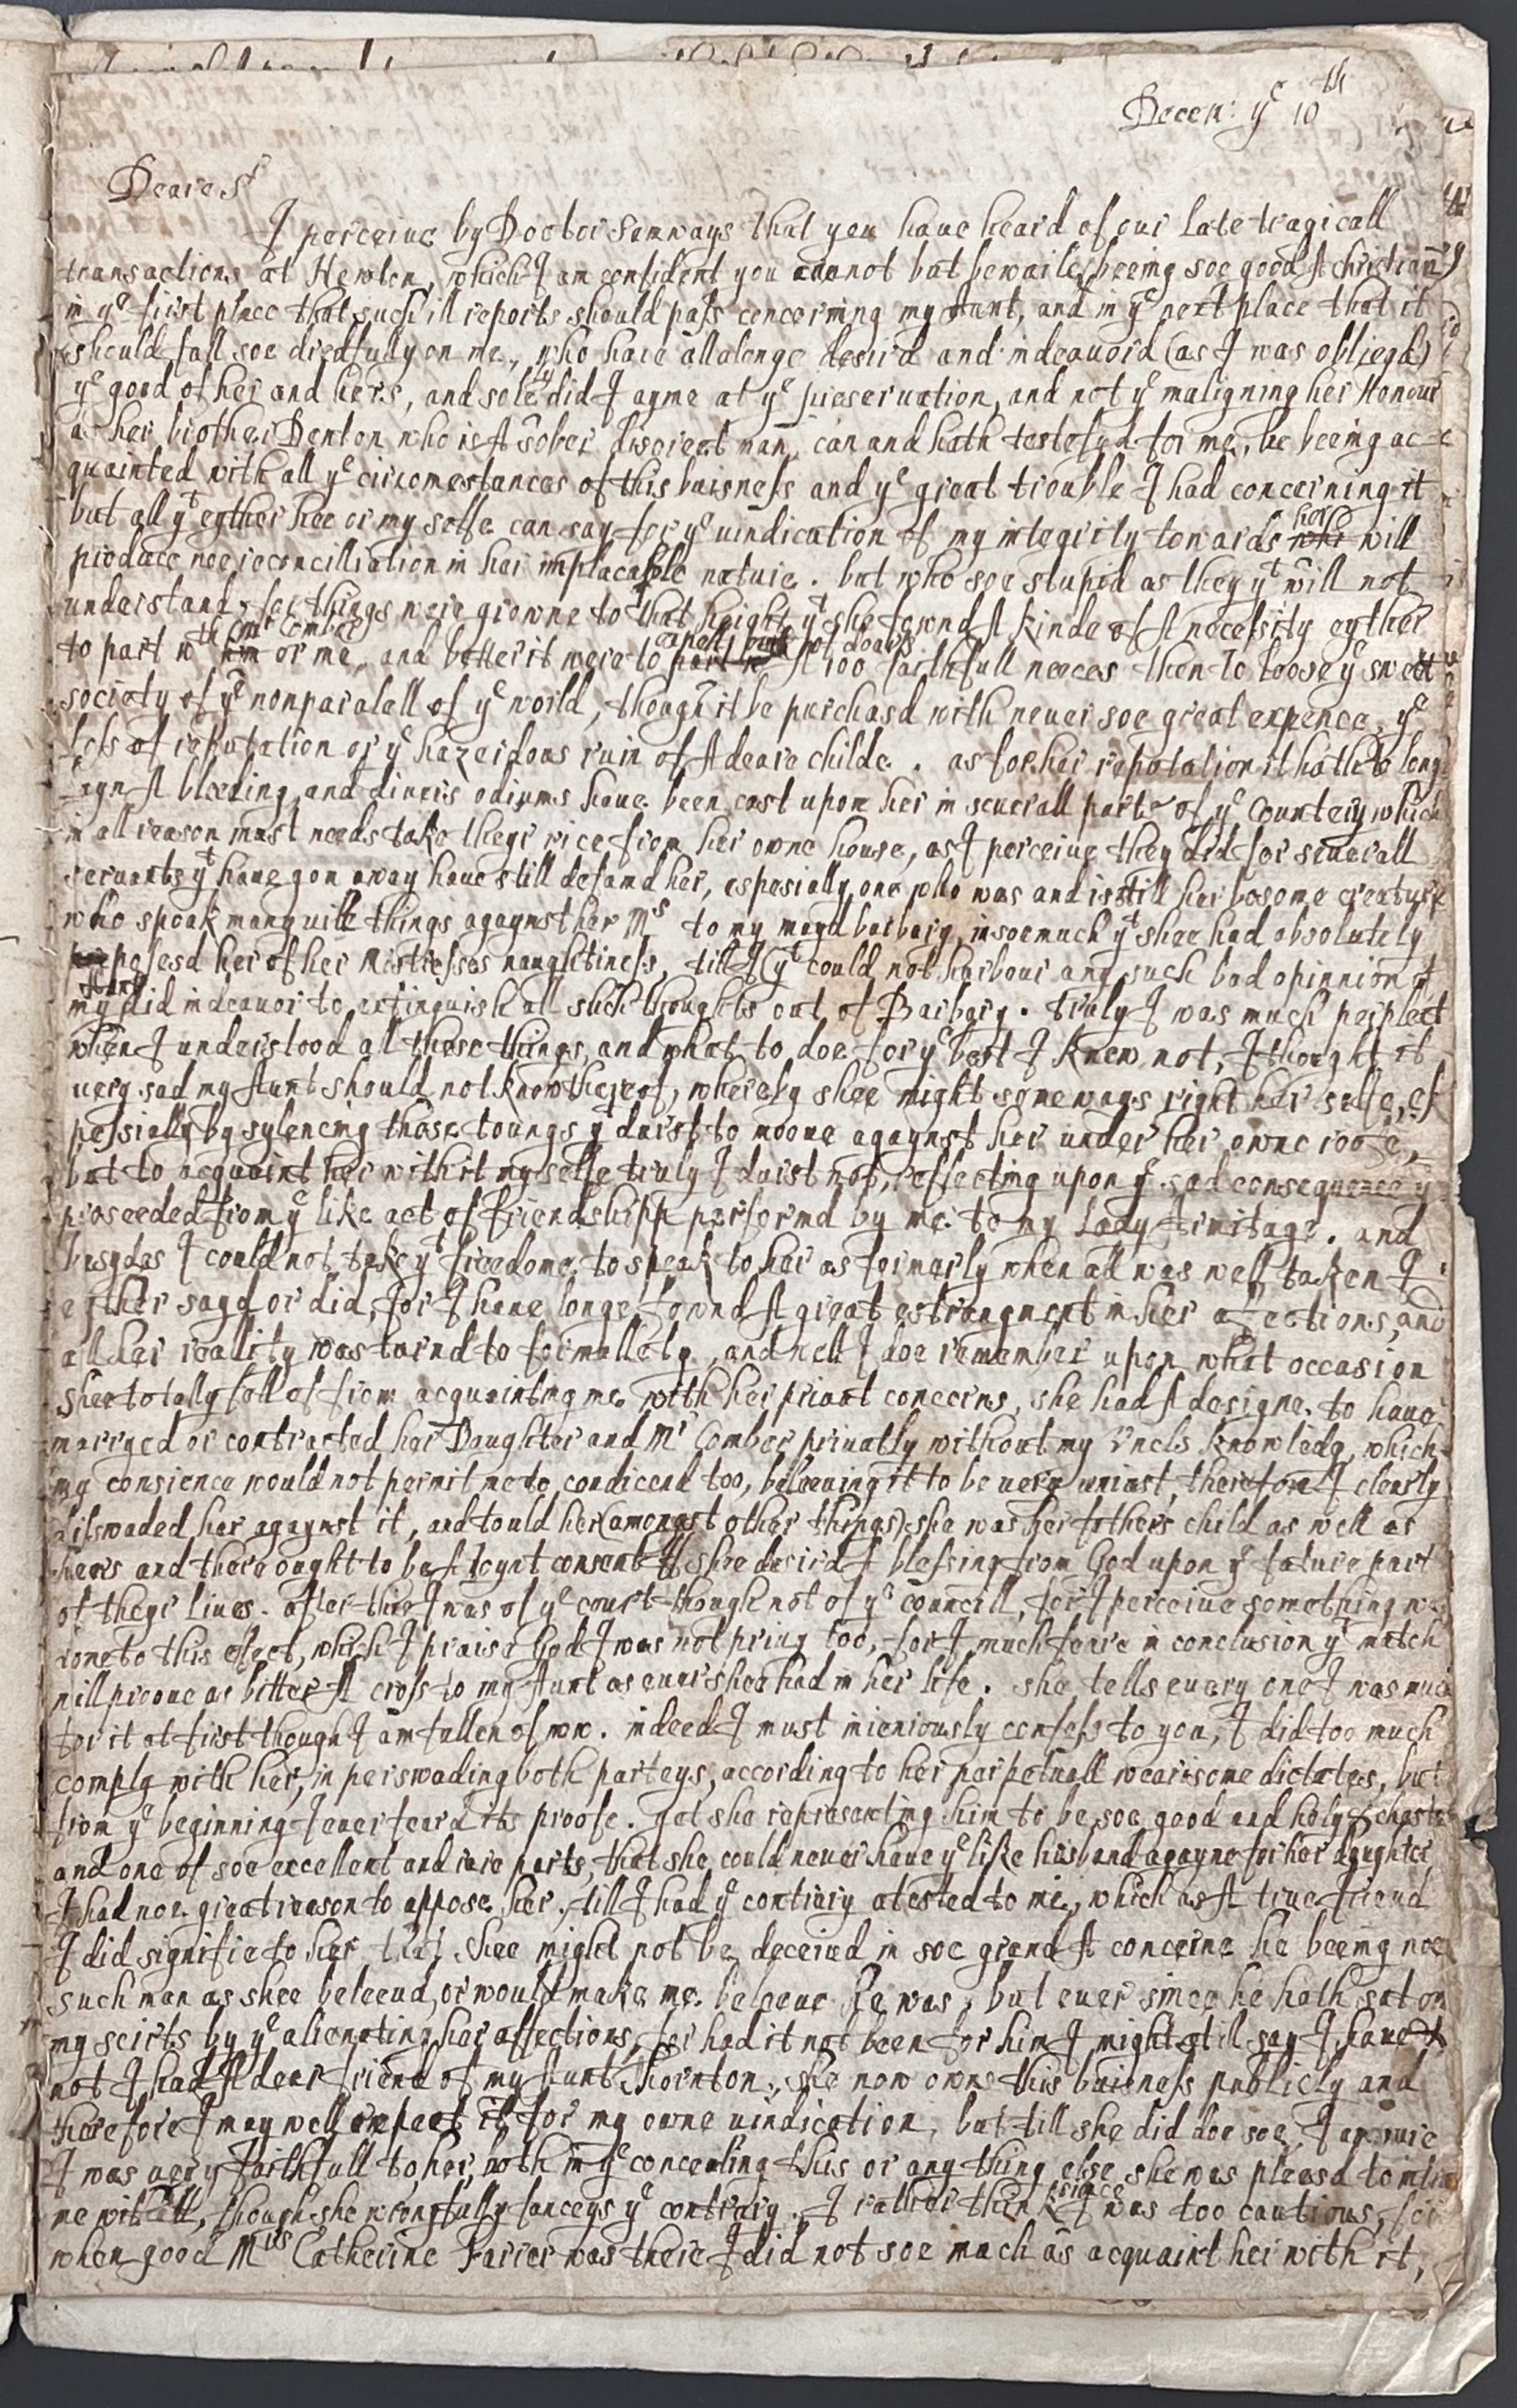 Decem: yͤ 10th
Deare Sr
I perceiue by Doctor Samways that you haue heard of our late tragicall
transactions at Newton, which I am confident you cannot but bewaile, beeing soe good A christian)
in yͤ first place that such ill reports should pass concerning my Aunt, and in yͤ next place that it
should fall soe dredfully on me, who haue all alonge desird and indeauord (as I was obliegd)
yͤ good of her and hers, and solely did I ayme at yͤ preseruation, and not yͤ maligning her Honour
as her brother Denton who is A sober discreet man, can and hath testefyd for me, he beeing ac-
quainted with all yͤ circomestances of this buisness and yͤ great trouble I had concerning it
but all yͭ eyther hee or my selfe can say for yͤ uindication of my integrity towards her will
produce noe reconcilliation in her implacable nature. but who soe stupid as they yͭ will not
understand, for things were growne to that height yͭ she fownd A kinde of A necessity eyther
to part wth mr Comber or me, and better it were to expell out of doars A 100 faithfull neeces then to loose yͤ sweet
society of yͤ nonparalall of yͤ world, though it be purchasd with neuer soe great expence, yͤ
loss of reputation or yͤ hazerdous ruin of A deare childe. as for her reputation it hath long
layn A bleeding, and diuers odiums haue been cast upon her in seuerall parts of yͤ Countery which
in all reason must needs take theyr rice from her owne house, as I perceiue they did for seuerall
seruants yͭ haue gon away haue still defamd her, espesially one who was and is still her bosome creature
who spoak many uile things agaynst her Ms to my mayd barbary, insoemuch yͭ shee had absolutely
posesd her of her Mistresses naughtiness, till I (yͭ could not harbour any such bad opinnion of
my Aunt did indeauor to extinguish all such thoughts out of Barbary. truly I was much perplext
when I understood al these things, and what to doe for yͤ best I knew not, I thought it
uery sad my Aunt should not know thereof, whereby shee might someways right her selfe, es
pessially by sylencing those toungs yͭ durst to mooue agaynst her under her owne roofe,
but to acquaint her with it my selfe truly I durst not, reflecting upon yͤ sad consequence yͭ
proseeded from yͤ like act of friendshipp performd by me to my Lady Armitage. and
besydes I could not take yͭ freedome to speak to her as formerly when all was well taken I
eyther sayd or did, for I haue longe fownd A great estrangment in her afections, and
all her reallity was turnd to formallety, and well I doe remember upon what occasion
shee totally fell of from acquainting me with her priuat concerns, she had A designe to haue
marryed or contracted her Daughter and Mr Comber priuatly without my Vncls knowledg, which
my consience would not permit me to condicend too, beleeuing it to be uery uniust, therefore I clearly
diswaded her agaynst it, and tould her (amongst other things) she was her fathers child as well as
hers and there ought to be A Ioynt consent if shee desird A blessing from God upon yͤ future part
of theyr liues. after this I was of yͤ court though not of yͤ councill, for I perceiue something wa
done to this efect, which I praise God I was not priuy too, for I much feare in conclusion yͭ match
will prooue as bitter A cross to my Aunt as euer shee had in her life. she tells euery one I was much
for it at first though I am fallen of now. indeed I must inieniously confess to you, I did too much
comply with her, in perswading both parteys, according to her perpetuall wearisome dictates, but
from yͤ beginning I euer feard its proofe. yet she representing him to be soe good and holy & chaste
and one of soe excellent and rare parts, that she could neuer haue yͤ like husband agayne for her daughter
I had noe great reason to appose her, till I had yͤ contrary atested to me, which as A true friend
I did signifie to her that shee might not be deceiud in soe grand A concerne he beeing noe
such man as shee beleeud, or would make me beleeue he was, but euer since he hath sat on
my scirts by yͤ alienating her affections, for had it not been for him I might stil say I haue &
not I had A dear friend of my Aunt Thornton, she now owns this buisness publicly and
therefore I may well repeat it for my owne uindication, but till she did doe soe, I am sure
I was uery faithfull to her, both in yͤ concealing this or any thing else she was pleasd to intru
me withall, though she wrongfully fanceys yͤ contrary. I rather think since I was too cautious, for
when good Mrs Catherine Farrer was there I did not soe much as acquaint her with it,